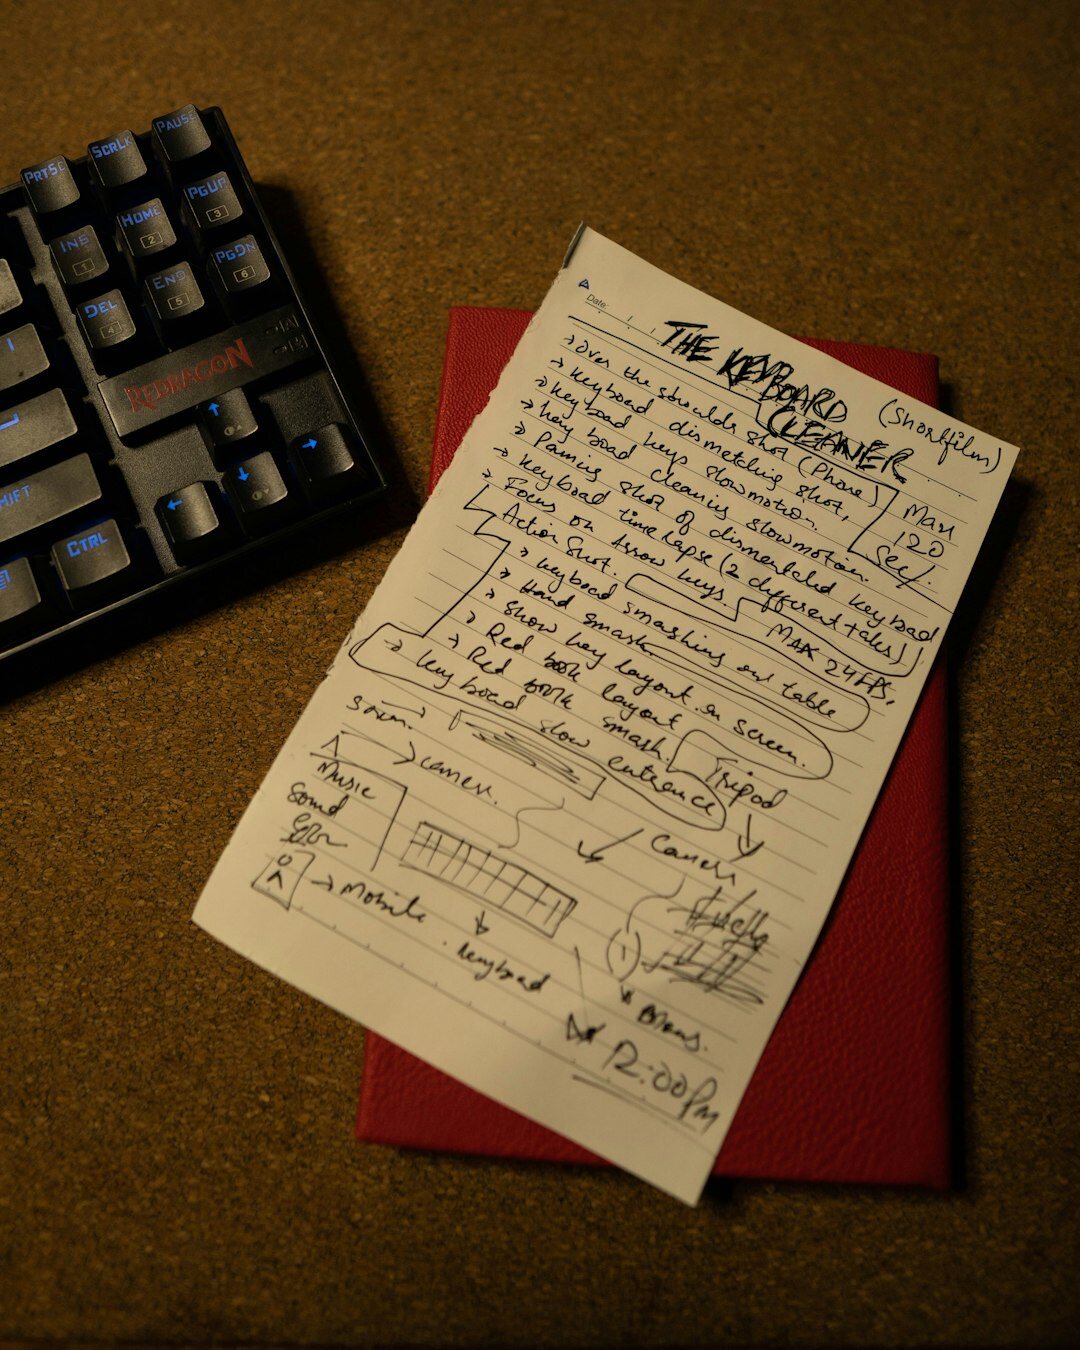 PrtSc ScrLK Pause
Ins Home PgUp
1 2 3
Del End PgDn
4 5 6
REDRAGON
SHIFT
CTRL
Date:
THE KEYBOARD
CLEANER
(Shortfilm)
→ Over the shoulde shot (Phone)
→ Keyboad dismetling shot,
→ Keyboad keys slowmotion.
→ key boad cleaning slowmotion.
→ Paning shot of dismentled keyboad
→ Keyboad timelapse (2 different takes)
→ Focus on Arrow keys.
Max
120
Sec/.
MAX 24FPS,
Action Shot.
→ Keyboad smashing on table
→ Hand smash
→ Show key layout on screen.
→ Red book layout
→ Red book smash.
→ Keyboad slow enterance
Tripod
→ camera.
Music
Sound
→ Mobile
Keyboad
1
12:00Pm